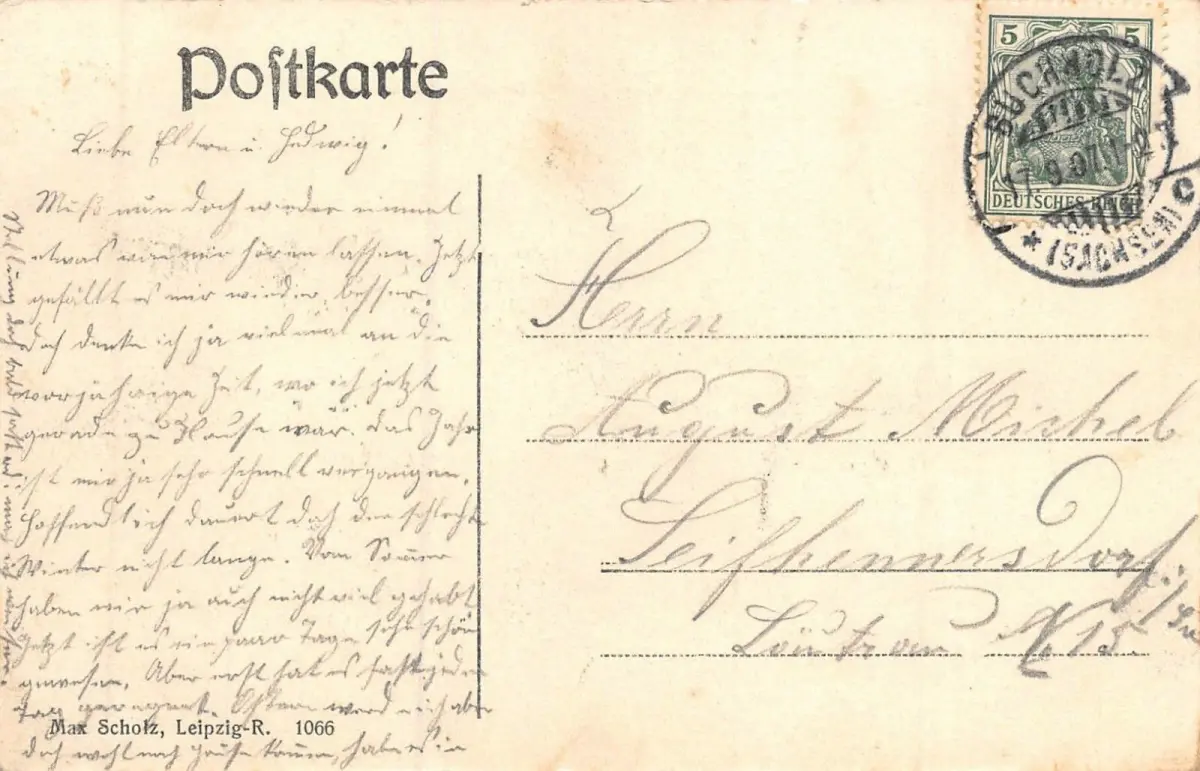 Postkarte
Liebe Eltern u. Hedwig!
Muß nun doch wieder einmal
etwas von mir hören lassen. Jetzt
gefällt es mir wieder besser,
doch denke ich ja vielmal an die
vorjährige Zeit, wo ich jetzt
gerade zu Hause war. Das Jahr
ist mir ja sehr schnell vergangen.
Hoffendlich dauert doch der schlechte
Winter nicht lange. Vom Sommer
haben wir ja auch nicht viel gehabt
Jetzt ist es ein paar Tage sehr schön
gewesen. Aber erst hat es fast jeden
Tag geregnet. Ostern werd ich aber
doch wohl nach Hause kommen, habe es in
Max Scholz, Leipzig-R. 1066
5 5
DEUTSCHES REICH
BUCHHOLZ
17.9.07
* (SACHSEN) c
Herrn
August Michel
Seifhennersdorf
i/Sa